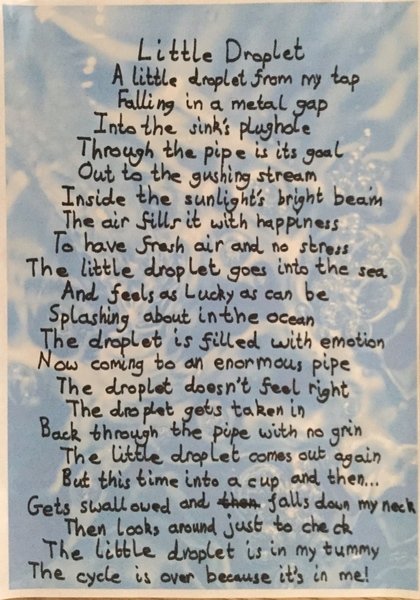 Little Droplet
A little droplet from my tap
Falling in a metal gap
Into the sink's plughole
Through the pipe is its goal
Out to the gushing stream
Inside the sunlight's bright beam
The air fills it with happiness
To have fresh air and no stress
The little droplet goes into the sea
And feels as Lucky as can be
Splashing about in the ocean
The droplet is filled with emotion
Now coming to an enormous pipe
The droplet doesn't feel right
The droplet gets taken in
Back through the pipe with no grin
The little droplet comes out again
But this time into a cup and then...
Gets swallowed and then falls down my neck
Then looks around just to check
The little droplet is in my tummy
The cycle is over because it's in me!